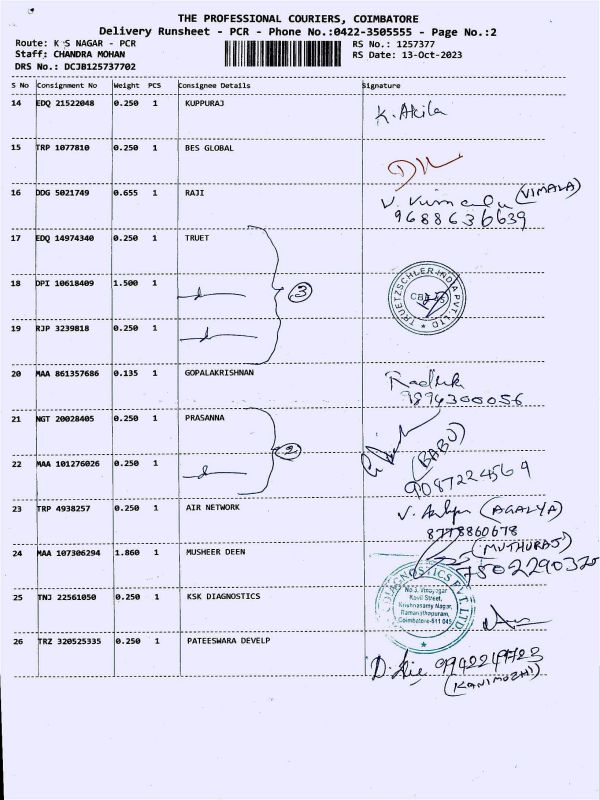 THE PROFESSIONAL COURIERS, COIMBATORE
Delivery Runsheet - PCR - Phone No.:0422-3505555 - Page No.:2
Route: K S NAGAR - PCR RS No.: 1257377
Staff: CHANDRA MOHAN RS Date: 13-Oct-2023
DRS No.: DCJB125737702
S No Consignment No Weight PCS Consignee Details Signature
14 EDQ 21522048 0.250 1 KUPPURAJ K. Akila
15 TRP 1077810 0.250 1 BES GLOBAL
16 DDG 5021749 0.655 1 RAJI (VIMALA)
9688636639
17 EDQ 14974340 0.250 1 TRUET
18 DPI 10618409 1.500 1 3 TRUETZSCHLER INDIA PVT. LTD
19 RJP 3239818 0.250 1
20 MAA 861357686 0.135 1 GOPALAKRISHNAN
9894300056
21 NGT 20028405 0.250 1 PRASANNA (BABU)
2
22 MAA 101276026 0.250 1 9087224569
23 TRP 4938257 0.250 1 AIR NETWORK (AGALYA)
8778860678
24 MAA 107306294 1.860 1 MUSHEER DEEN (MUTHURAJ)
7502290320
25 TNJ 22561050 0.250 1 KSK DIAGNOSTICS
DIAGNOSTICS PVT LTD
No 3, Vinayagar
Kovil Street,
Krishnasamy Nagar,
Ramanathapuram,
Coimbatore-641 045
26 TRZ 320525335 0.250 1 PATEESWARA DEVELP
(KANIMOZHI)